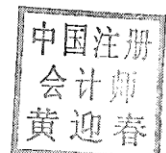 中国注册
会计师
黄迎春